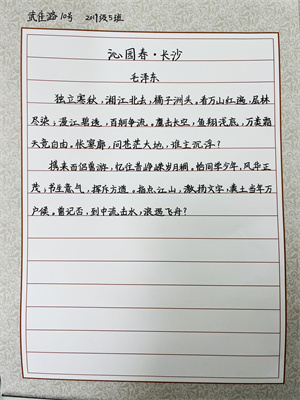 武佳璐 10号 2011级5班
沁园春·长沙
毛泽东
独立寒秋，湘江北去，橘子洲头。看万山红遍，层林
尽染；漫江碧透，百舸争流。鹰击长空，鱼翔浅底，万类霜
天竞自由。怅寥廓，问苍茫大地，谁主沉浮？
携来百侣曾游，忆往昔峥嵘岁月稠。恰同学少年，风华正
茂；书生意气，挥斥方遒。指点江山，激扬文字，粪土当年万
户侯。曾记否，到中流击水，浪遏飞舟？